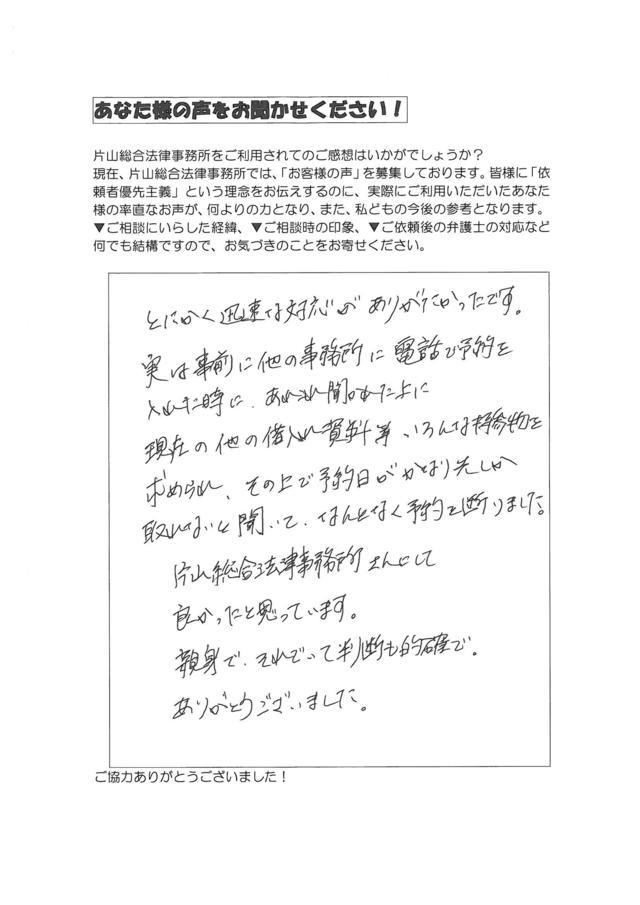 あなた様の声をお聞かせください！
片山総合法律事務所をご利用されてのご感想はいかがでしょうか？
現在、片山総合法律事務所では、「お客様の声」を募集しております。皆様に「依
頼者優先主義」という理念をお伝えするのに、実際にご利用いただいたあなた
様の率直なお声が、何よりの力となり、また、私どもの今後の参考となります。
▼ご相談にいらした経緯、▼ご相談時の印象、▼ご依頼後の弁護士の対応など
何でも結構ですので、お気づきのことをお寄せください。
とにかく迅速な対応がありがたかったです。
実は事前に他の事務所に電話で予約を
入れた時に、あれこれ聞かれた上に
現在の他の借入れ資料等、いろんな持参物を
求められ、その上で予約日がかなり先しか
取れないと聞いて、なんとなく予約を断りました。
片山総合法律事務所さんにして
良かったと思っています。
親身で、それでいて判断も的確で。
ありがとうございました。
ご協力ありがとうございました！